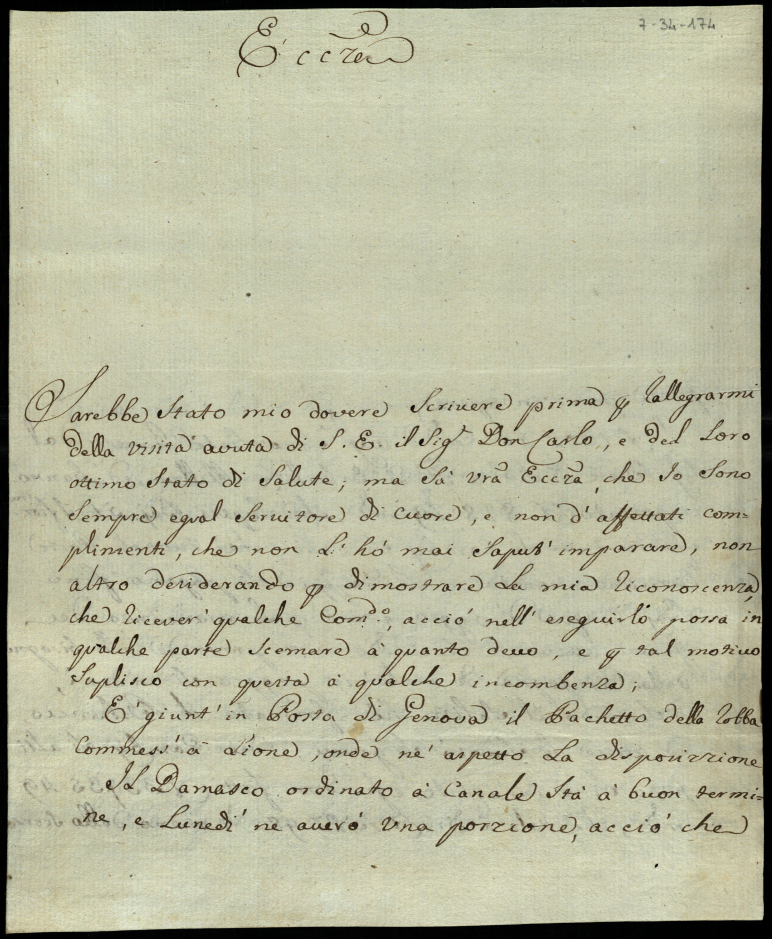 7-34-174
Eccze
Sarebbe Stato mio dovere Scrivere prima ꝑ rallegrarmi
della visita avuta di S. E. il Sigr Don Carlo, e del Loro
ottimo Stato di Salute; ma Sà vra Eccza, che Io Sono
Sempre egval Servitore di cuore, e non d'affettati com-
plimenti, che non L'hó mai Saput' imparare, non
altro desiderando ꝑ dimostrare La mia riconoscenza,
che ricever' qvalche Comdo, acció nell' eseguirló possa in
qvalche parte Scemare à qvanto devo, e ꝑ tal motivo
Suplisco con qvesta à qvalche incombenza;
E' giunt' in Posta di Genova il Pachetto della robba
Commess' à Lione, onde ne' aspetto La disposizione
Il Damasco ordinato à Canale Stà à buon termi-
ne, e Lunedi' ne averó vna porzione, acció che